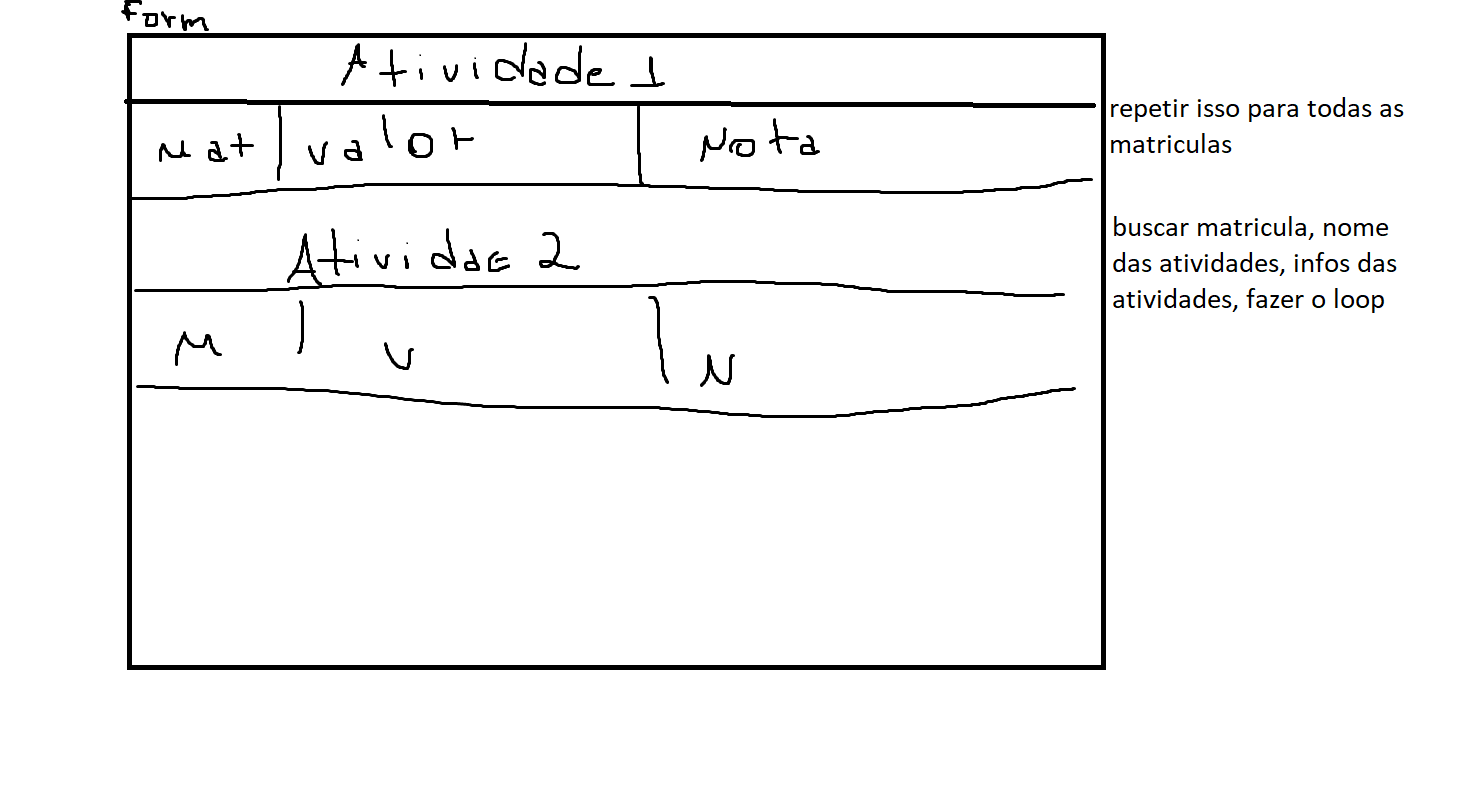 Form
Atividade 1
Mat valor Nota
repetir isso para todas as
matriculas
buscar matricula, nome
das atividades, infos das
atividades, fazer o loop
Atividae 2
M V N